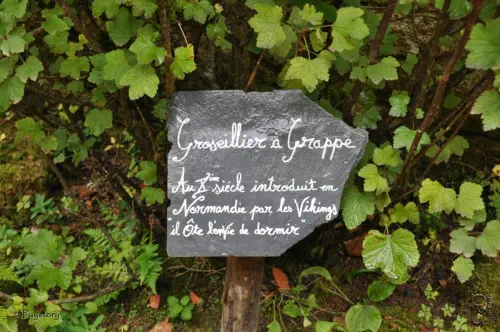 Groseillier à Grappe
Au Xème siècle introduit en
Normandie par les "Vikings
il Ôte l'envie de dormir"
© Puystory